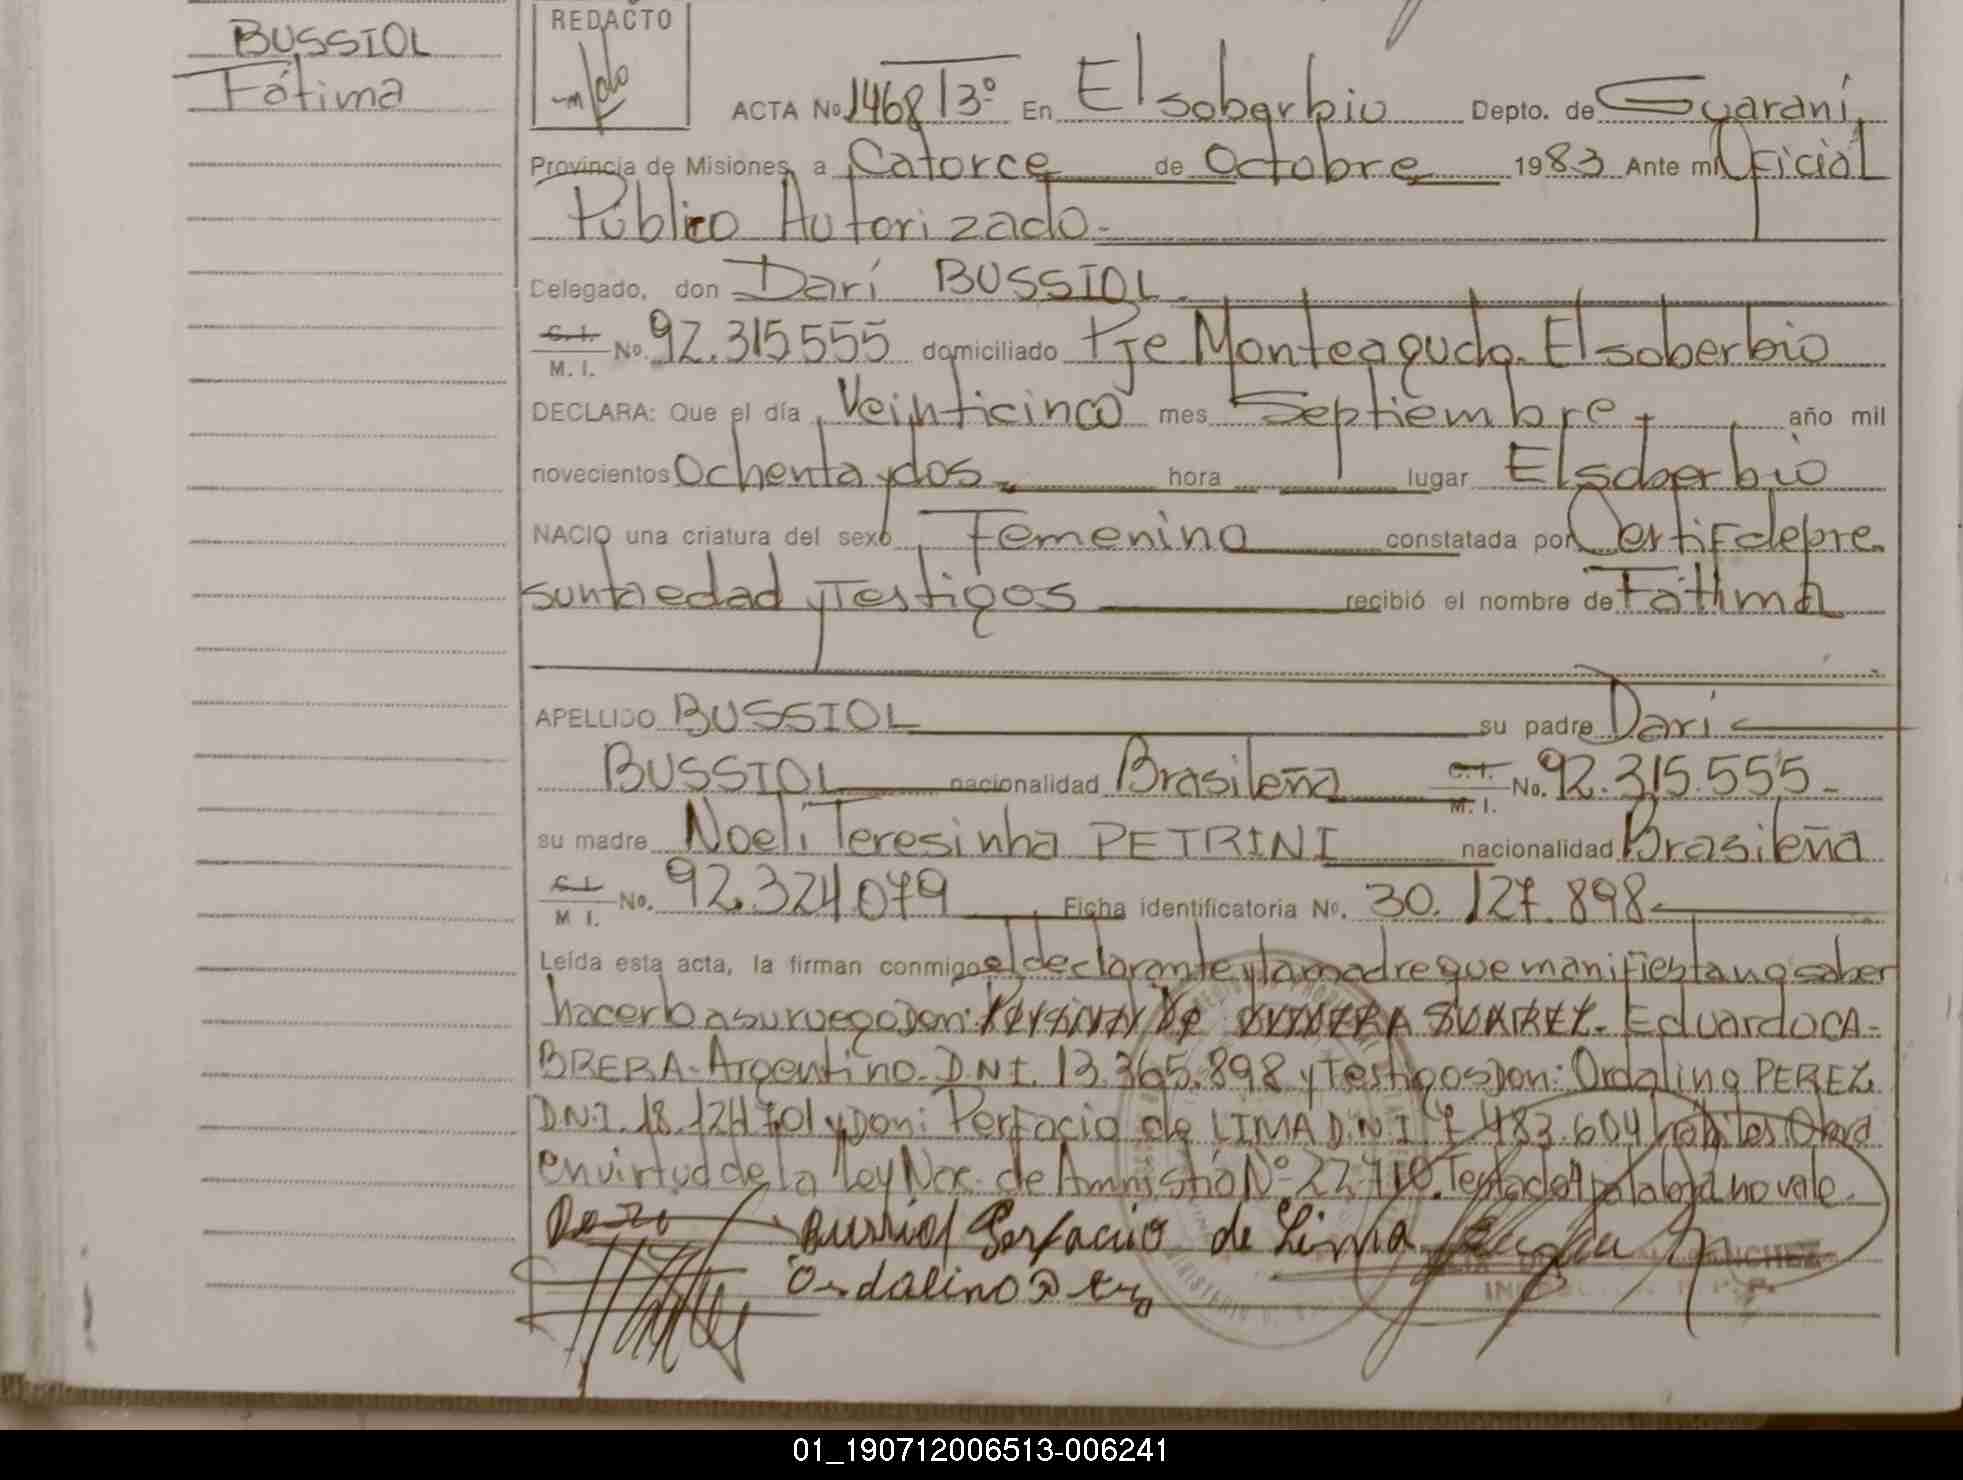 BUSSIOL
Fátima
REDACTO
ACTA No. 1468 T3º En El soberbio Depto. de Guaraní
Provincia de Misiones, a Catorce de Octubre 1983 Ante mi Oficial
Público Autorizado.-
Delegado, don Darí BUSSIOL.
C. I. M. I. No. 92.315555 domiciliado Pje Monteagudo. El soberbio
DECLARA: Que el día Veinticinco mes Septiembre año mil
novecientos Ochenta y dos hora lugar El soberbio
NACIO una criatura del sexo Femenino constatada por Certif de pre
sunta edad y Testigos recibió el nombre de Fátima
APELLIDO BUSSIOL su padre Darí
BUSSIOL nacionalidad Brasileña C. I. M. I. No. 92.315.555-
su madre Noeli Teresinha PETRINI nacionalidad Brasileña
C. I. M I. No. 92.324.079 Ficha identificatoria No. 30.127.898-
Leída esta acta, la firman conmigo el declarante y la madre que manifiesta no saber
hacerlo a su ruego Don: Eduardo CA-
BRERA- Argentino. D.N.I. 13.365.898 y Testigos Don: Ordalino PEREZ
D.N.I. 18.124.701 y Don: Perfacio de LIMA D.N.I. 7.483.604 hábiles
en virtud de la Ley Nac. de Amnistía Nº 22.710. Testado 4 palabra no vale.
Bussiol Perfacio de Lima
Ordalino
01_190712006513-006241